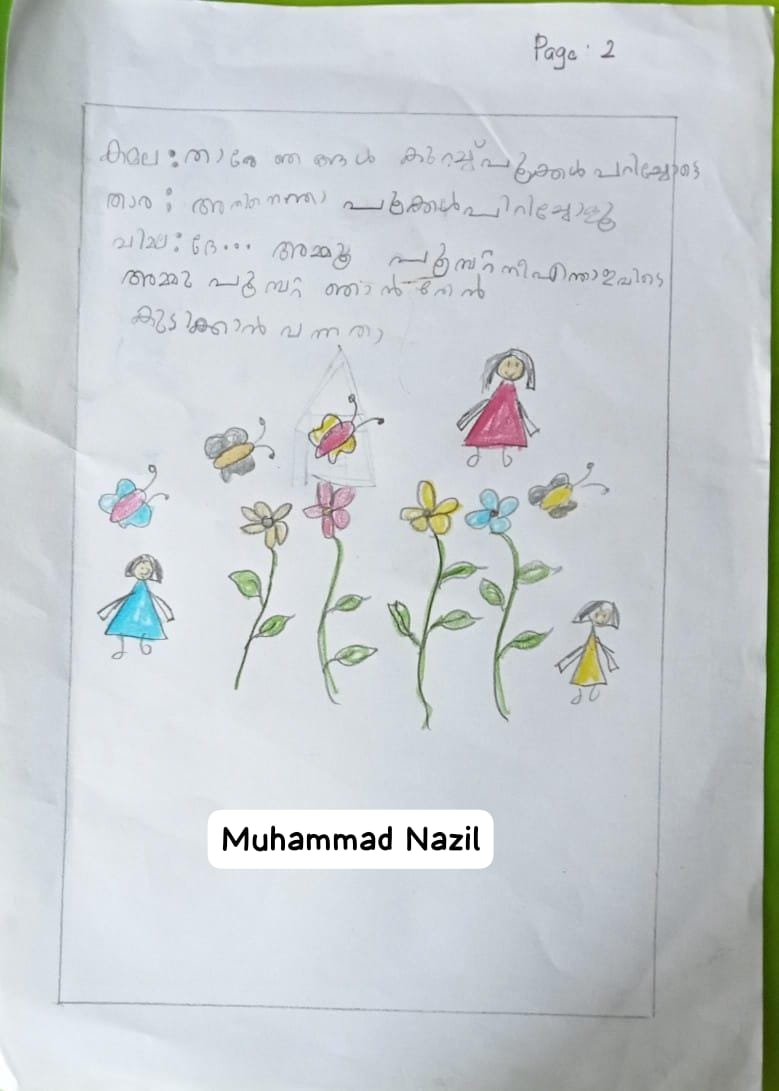 Page : 2
കമല : താരേ ഞങ്ങൾ കുറച്ച് പൂക്കൾ പറിച്ചോട്ടെ
താര : അതിനെന്താ പൂക്കൾ പിറിച്ചോളൂ
വിമല : ദേ... അമ്മൂ പൂമ്പാറ്റ നീ എന്താ ഇവിടെ
അമ്മു പൂമ്പാറ്റ ഞാൻ തേൻ
കുടിക്കാൻ വന്നതാ
Muhammad Nazil